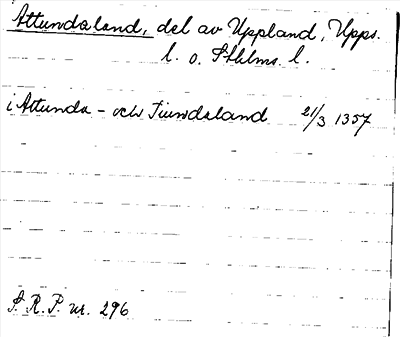 Attundaland, del av Uppland, Upps.
l. o. Sthlms l.
i Attunda- och Tiundaland 21/3 1357
S. R. P. nr. 296